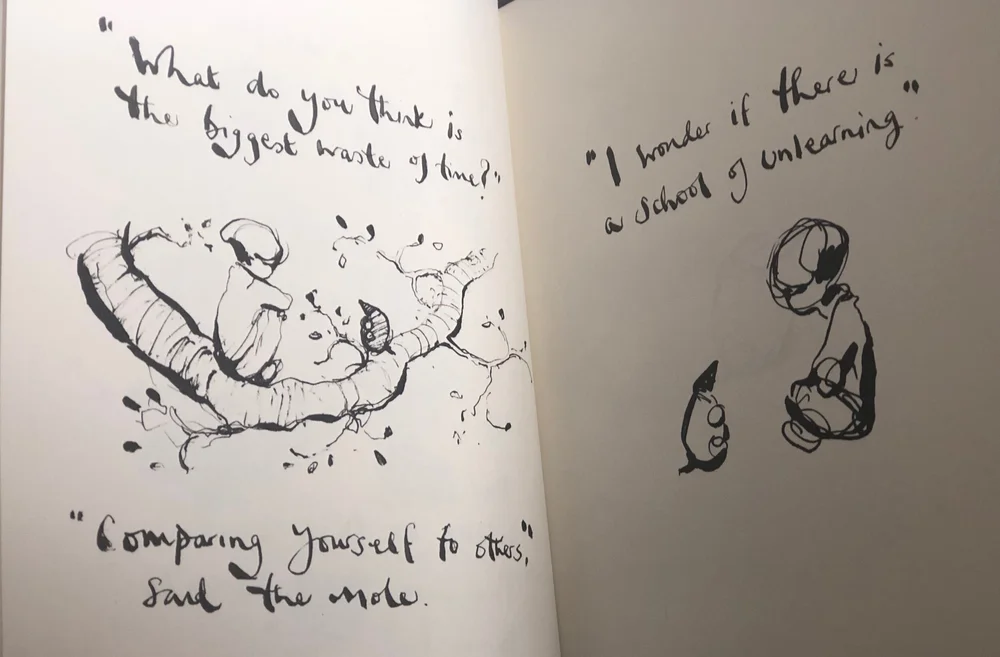 "What do you think is
the biggest waste of time?"
"Comparing yourself to others,"
said the mole.
"I wonder if there is
a school of unlearning."